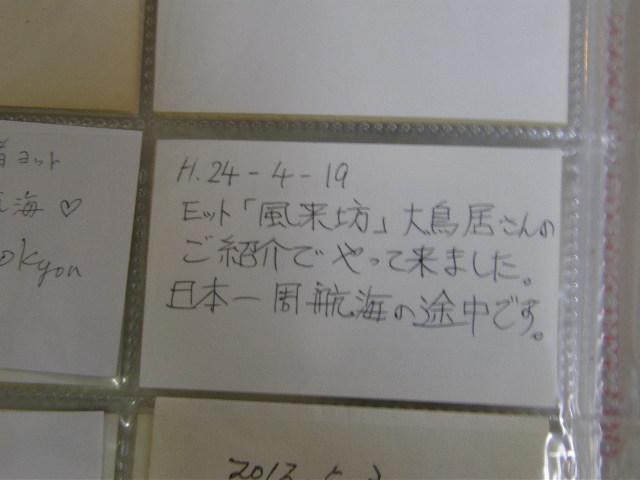 H.24-4-19
ヨット「風来坊」大鳥居さんの
ご紹介でやって来ました。
日本一周航海の途中です。
ヨット
海♡
kyon